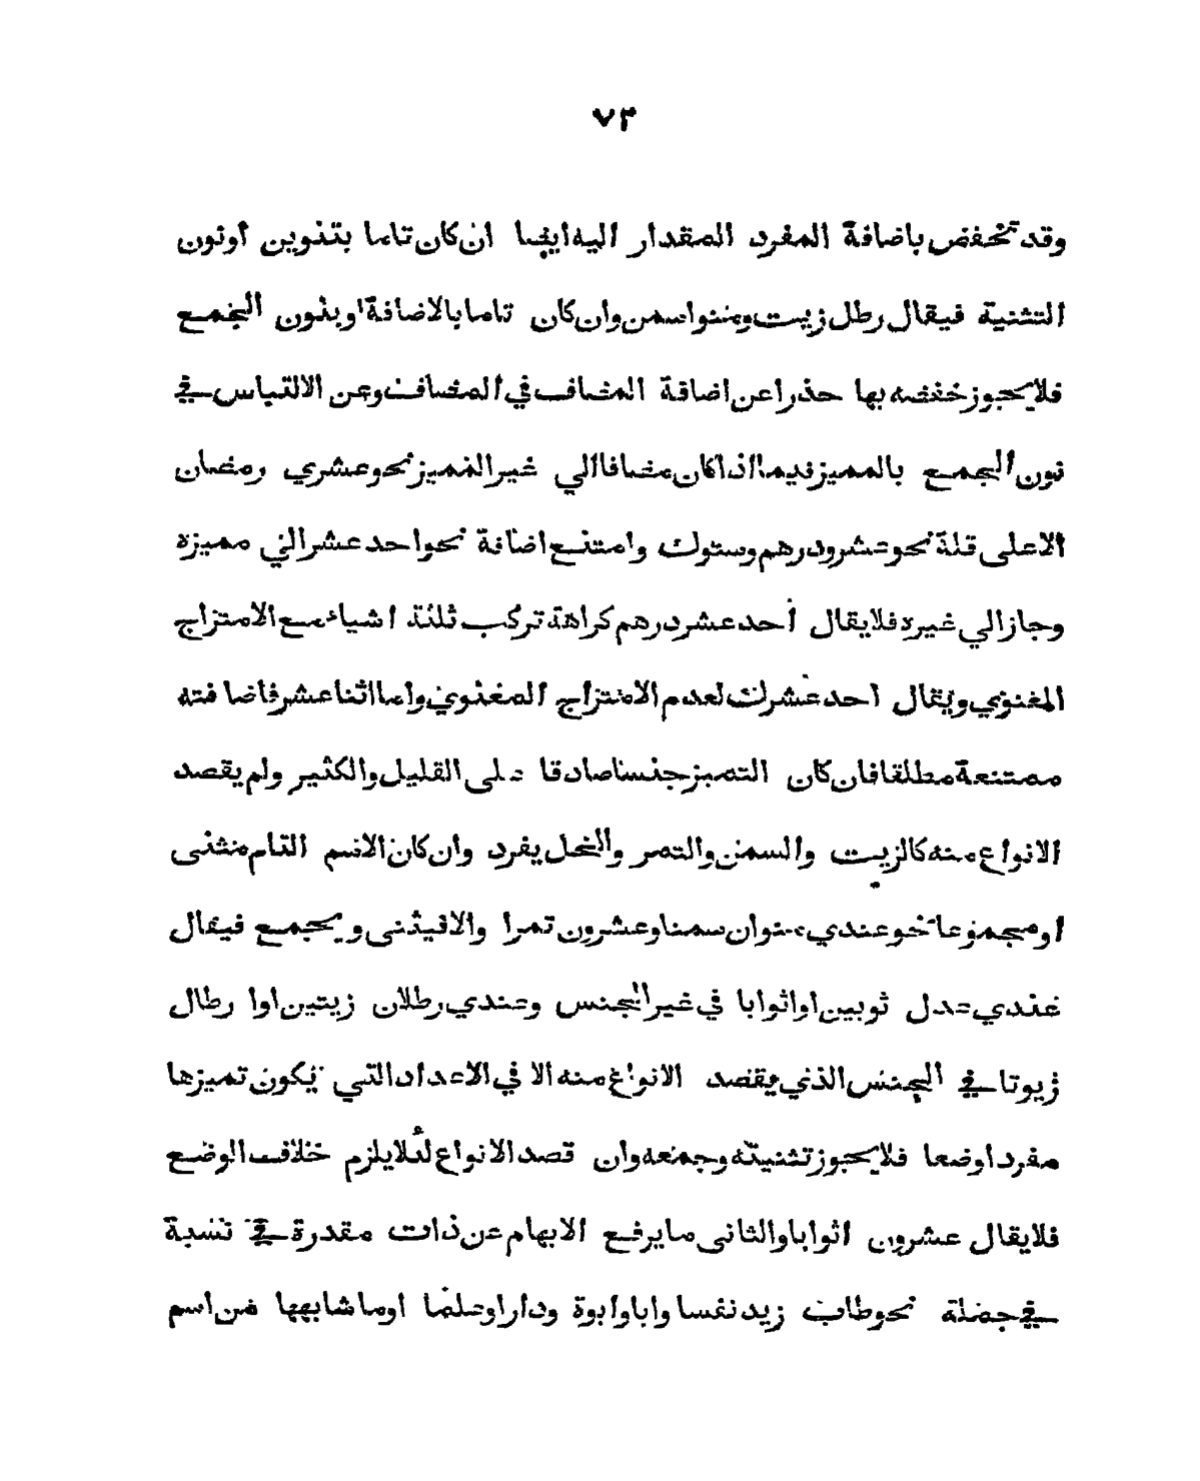 ٧٣
وقد تخفض باضافة المفرد المقدار اليه ايضا ان كان تاما بتنوين أونون
التثنية فيقال رطل زيت ومنوا سمن وان كان تاما بالاضافة او بنون الجمع
فلا يجوز خفضه بها حذرا عن اضافة المضاف في المضاف وعن الالتباس في
نون الجمع بالمميز فيما اذا كان مضافا الي غير المميز نحو عشري رمضان
الا على قلة نحو عشرودرهم وستوك وامتنع اضافة نحو احد عشر الي مميزه
وجاز الي غيره فلا يقال أحد عشر درهم كراهة تركب ثلثة اشياء مع الامتزاج
المعنوي ويقال احد عشرك لعدم الامتزاج المعنوي واما اثنا عشر فاضافته
ممتنعة مطلقا فان كان التميز جنسا صادقا على القليل والكثير ولم يقصد
الانواع منه كالزيت والسمن والتمر والنحل يفرد وان كان الاسم التام مثنى
او مجموعا نحو عندي منوان سمنا وعشرون تمرا والا فيثنى ويجمع فيقال
عندي عدل ثوبين او اثوابا في غير الجنس وعندي رطلان زيتين او ارطال
زيوتا في الجنس الذي يقصد الانواع منه الا في الاعداد التي يكون تميزها
مفردا وضعا فلا يجوز تثنيته وجمعه وان قصد الانواع لئلا يلزم خلاف الوضع
فلا يقال عشرون اثوابا والثانى ما يرفع الابهام عن ذات مقدرة في نسبة
في جملة نحو طاب زيد نفسا وابا وابوة ودارا وعلما او ما شابهها من اسم